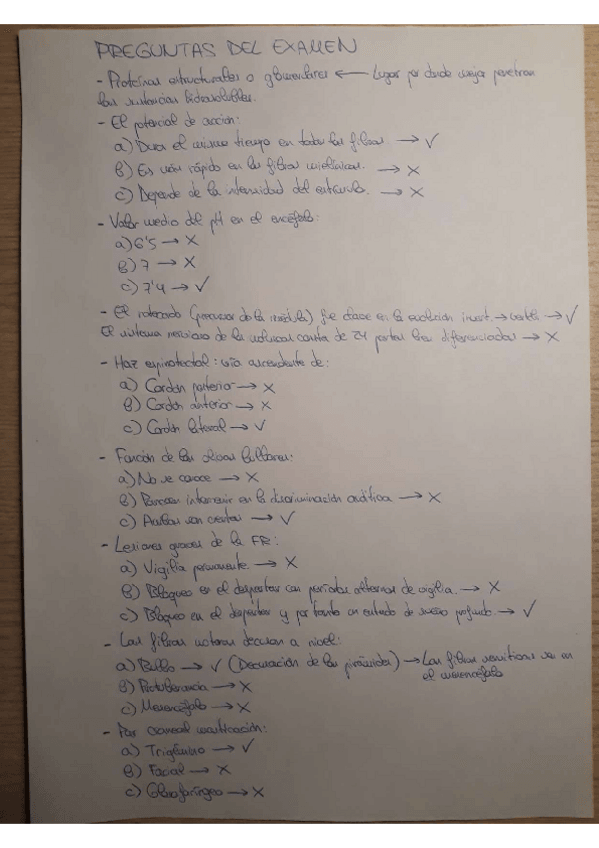 PREGUNTAS DEL EXAMEN
- Proteínas estructurales o globulares ← Lugar por donde mejor penetran
las sustancias hidrosolubles.
- El potencial de acción:
a) Dura el mismo tiempo en todas las fibras. → ✓
b) Es más rápido en las fibras mielínicas. → X
c) Depende de la intensidad del estímulo. → X
- Valor medio del pH en el encéfalo:
a) 6'5 → X
b) 7 → X
c) 7'4 → ✓
- El notocordio (precursor de la médula) fue clave en la evolución invert. → verteb. → ✓
El sistema nervioso de la consta de 24 partes bien diferenciadas → X
- Haz espinotectal: vía ascendente de:
a) Cordón posterior → X
b) Cordón anterior → X
c) Cordón lateral → ✓
- Función de las olivas bulbares:
a) No se conoce → X
b) Parecen intervenir en la discriminación auditiva → X
c) Ambas son ciertas → ✓
- Lesiones graves de la FR:
a) Vigilia permanente. → X
b) Bloqueo en el despertar con períodos alternos de vigilia. → X
c) Bloqueo en el despertar y por tanto un estado de sueño profundo. → ✓
- Las fibras motoras decusan a nivel:
a) Bulbo → ✓ (Decusación de las pirámides) → Las fibras sensitivas es en
el mesencéfalo
b) Protuberancia → X
c) Mesencéfalo → X
- Par craneal masticación:
a) Trigémino → ✓
b) Facial → X
c) Glosofaríngeo → X